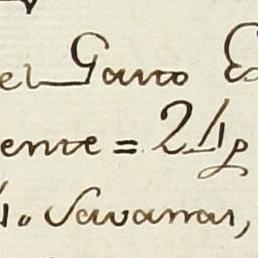 el Garro E
ente = 24p
4. Savanas,